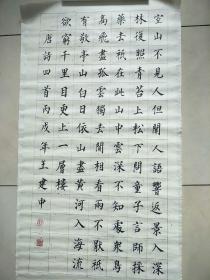 空山不見人但聞人語響返景入深
林復照青苔上松下問童子言師採
藥去衹在此山中雲深不知處衆鳥
高飛盡孤雲獨去閑相看兩不厭衹
有敬亭山白日依山盡黃河入海流
欲窮千里目更上一層樓
唐詩四首丙戌年王建中